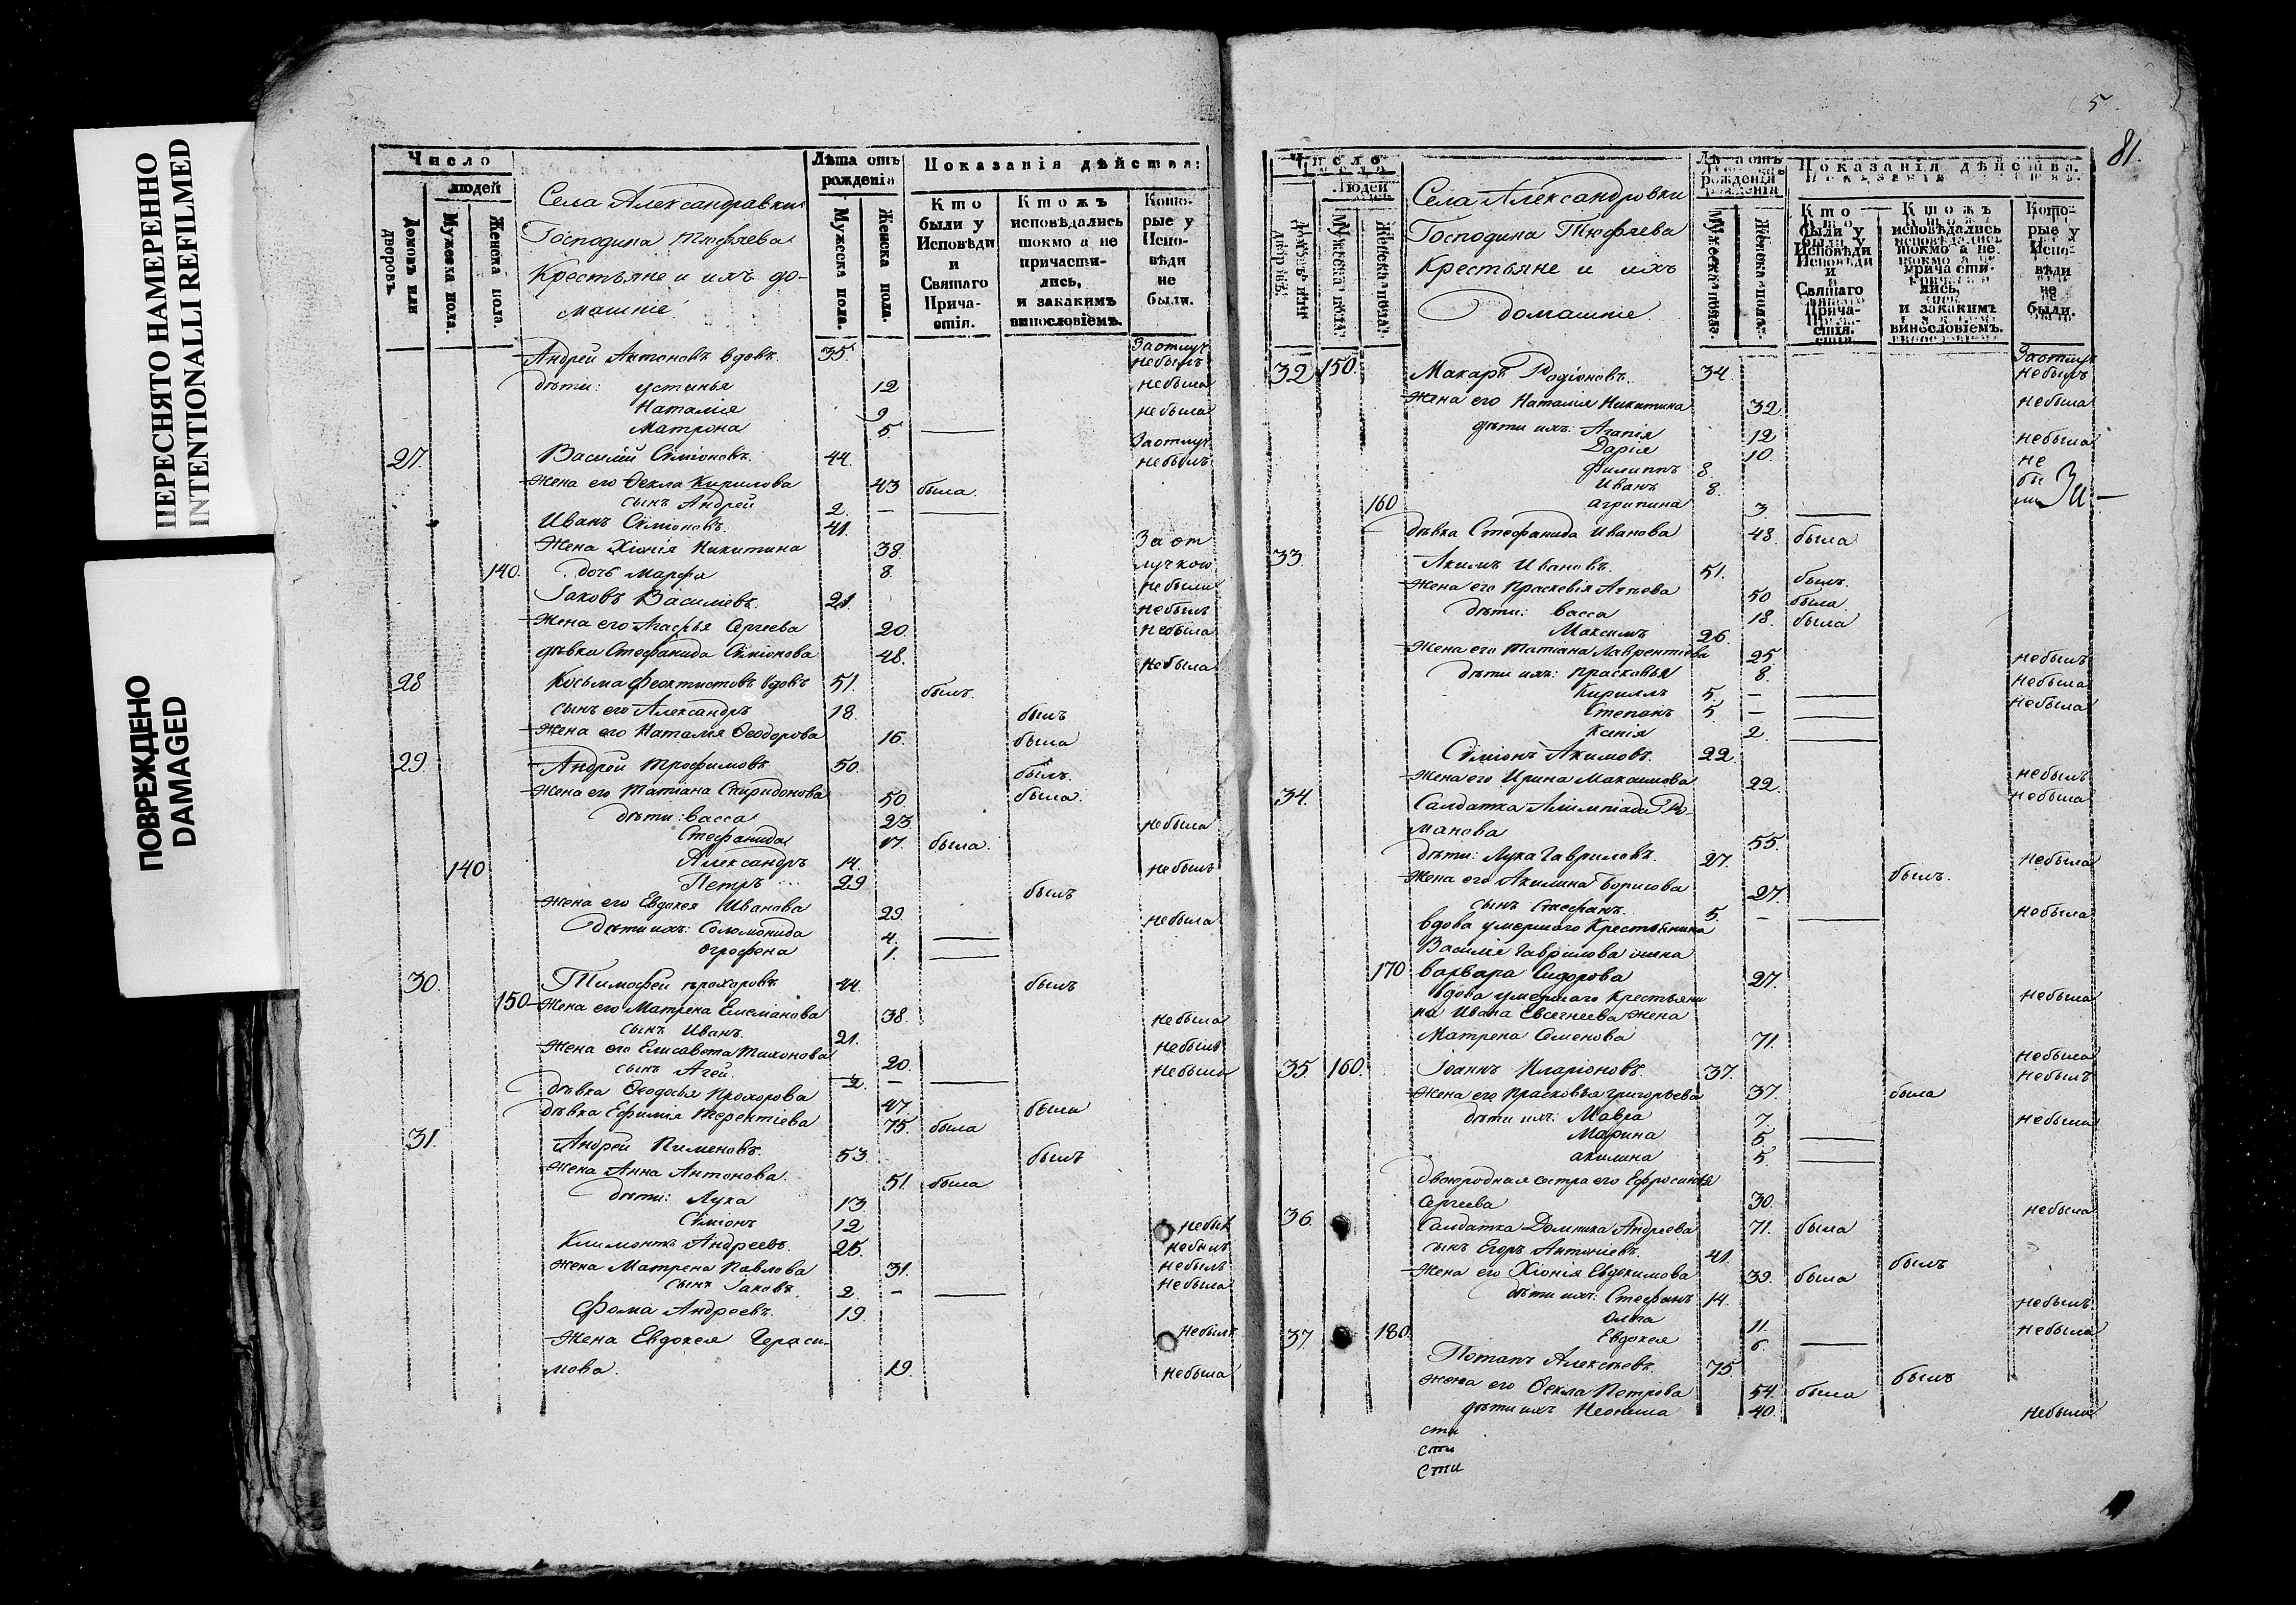 ПЕРЕСНЯТО НАМЕРЕННО
INTENTIONALLI REFILMED
ПОВРЕЖДЕНО
DAMAGED
Число
людей
Домовъ или дворовъ.
Мужеска пола.
Женска пола.
Села Александравки
Господина Тюфяева
Крестьяне и ихъ до-
машніе
Лѣта отъ рожденія
Мужеска пола.
Женска пола.
Показанія дѣйства:
Кто были у Исповѣди и Святаго Прича-стія.
Ктожъ исповѣдались токмо а не причасти-лись, и закакимъ винословіемъ.
Кото-рые у Испо-вѣди не были.
Андрей Антоновъ вдовъ 35. Заотлуч небылъ
дѣти: устинья 12 небыла
Наталія 9 небыла
Матрона 5. —
27. Василій Симіоновъ. 44. Заотлуч небылъ
Жена его Ѳекла Кирилова 43 была
сынъ Андрей 2. — —
Иванъ Симіоновъ. 41.
Жена Хіонія Никитина 38. За от
140. дочь Марфа 8. лучкою небыли
Іаковъ Василіевъ. 21. небылъ
Жена его Агафья Сергеева 20. небыла
дѣвка Стефанида Симіонова 48. небыла
28 Косьма Феоктистовъ вдовъ 51. былъ.
сынъ его Александръ 18. былъ
Жена его Наталія Ѳеодорова 16. была
29. Андрей Трофимовъ 50. былъ.
Жена его Татіана Спиридонова 50. была.
дѣти: васса 23. небыла
Стефанида 17. была.
140 Александръ 14. небылъ
Петръ 29 былъ
Жена его Евдокея Иванова 29. небыла
Дѣти ихъ: Соломонида 4. —
огрофена 1. —
30. Тимофей прохоровъ 44. былъ
150 Жена его Матрена Емелианова 38. небыла
сынъ Иванъ. 21. небылъ
Жена его Елисавета Тихонова 20. небыла
сынъ Агей. 2. — —
дѣвка Ѳеодосья Прохорова 47. была
дѣвка Ефимія Терентіева 75. была
31. Андрей Пименовъ. 53. былъ
Жена Анна Антонова. 51. была
дѣти: Лука 13.
Симіонъ 12. небыл
Климонтъ Андреевъ. 25. небылъ
Жена Матрена Павлова 31. небыла
сынъ Іаковъ. 2. — —
Фома Андреевъ. 19. небылъ
Жена Евдокея Гераси-
мова. 19. небыла
5
81.
Число
Людей
Домовъ или дворовъ.
Мужеска пола.
Женска пола.
Села Александровки
Господина Тюфяева
Крестьяне и ихъ
домашніе
Лѣта отъ рожденія
Мужеска пола.
Женска пола.
Показанія дѣйства.
Кто были у Исповѣди и Святаго Прича-стія.
Ктожъ исповѣдались токмо а не причасти-лись, и закакимъ винословіемъ.
Кото-рые у Испо-вѣди не были.
32 150. Макаръ Родіоновъ. 34. Заотлуч небылъ
Жена его Наталія Никитина 32. небыла
дѣти ихъ: Агапія 12 небыла
Дарія 10. не
филиппъ 8. бы
Иванъ 8. ли
160 агрипина 3 —
дѣвка Стефанида Иванова 48. была
33. Акимъ Ивановъ. 51. былъ.
Жена его Праскевія 50 была
дѣти: васса 18. была
Максимъ 26. небылъ
Жена его Татіана Лаврентіева 25. небыла
дѣти ихъ: прасковья 8. небыла
Кириллъ 5. — —
Степанъ 5 — —
Ксенія 2. —
Симіонъ Акимовъ. 22. небылъ
Жена его Ирина Максимова 22. небыла
34. Салдатка Алимпіада Ро-
манова 55. небыла
дѣти: Лука Гавриловъ. 27. былъ.
Жена его Акилина Борисова 27. небыла
сынъ Стефанъ. 5. — —
вдова умершаго Крестьянина
Василія Гаврилова жена
170 варвара Сидорова 27. небыла
вдова умершаго Крестьяни
на Ивана Евсегнеева жена
Матрена Семенова 71. небыла
35. 160. Іоаннъ Иларіоновъ. 37. небылъ
Жена его Прасковья григорьева 37. была
дѣти ихъ: Мавра 7. небыла
Марина 5. —
акилина 5. —
двоюродная сестра его Ефросинья
Сергеева 30. небыла
36. Салдатка Домника Андреева 71. была
сынъ Егоръ Антоніевъ. 41. былъ
Жена его Хіонія Евдокимова 39. была
дѣти ихъ: Стефанъ 14. небылъ
Олга 11. небыла
37. 180. Евдокея 6. —
Потапъ Алексѣевъ. 75. былъ
жена его Ѳекла Петрова 54. была
дѣти ихъ Неонила 40. небыла
сти
сти
сти